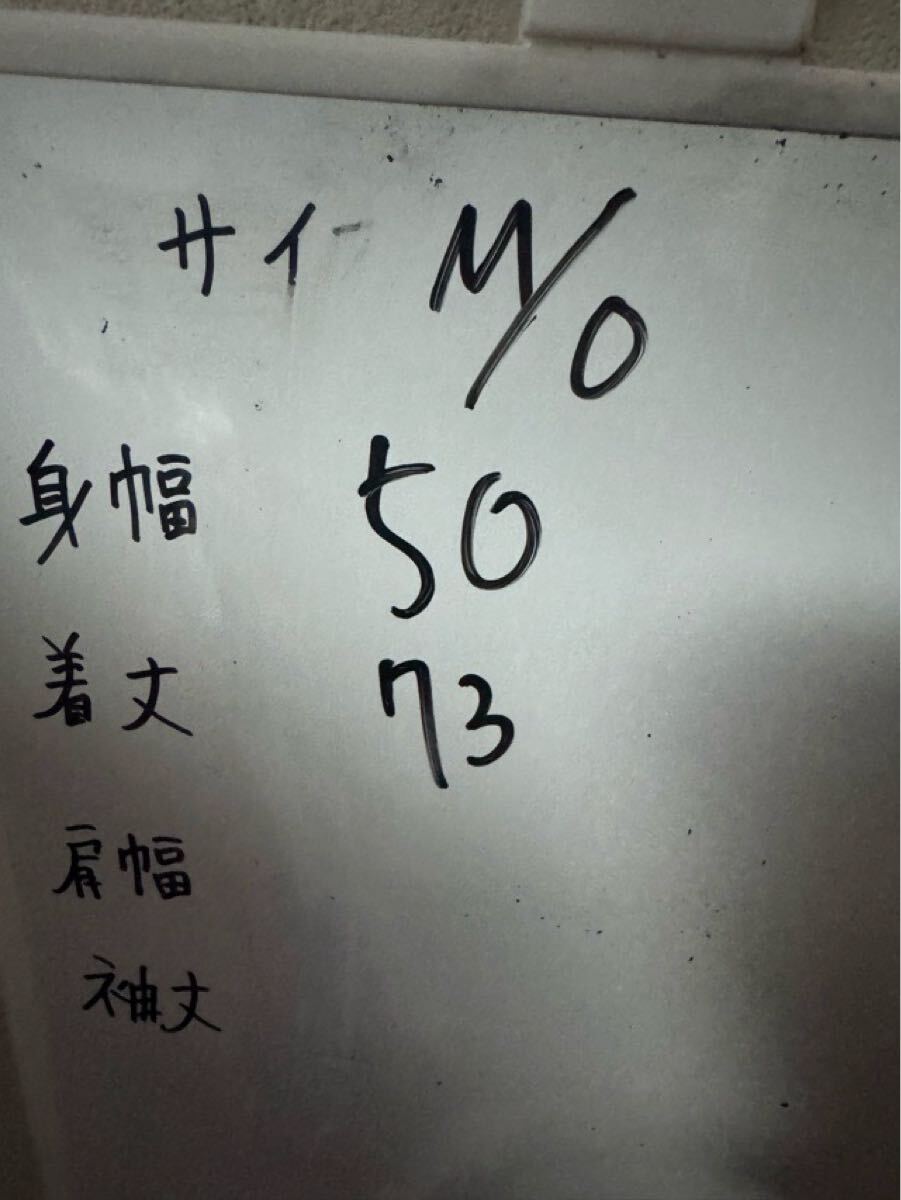 サイ M/O
身幅 50
着丈 73
肩幅
袖丈